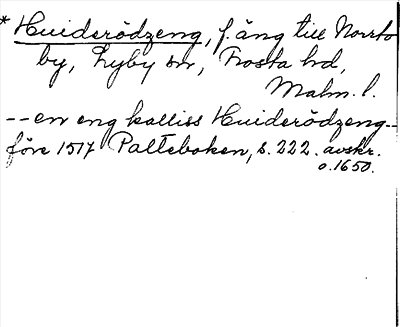 * Huiderödzeng, f. äng till Norrto
by, Lyby sn, Frosta hd,
Malm. l.
-- en eng kalliss Huiderödzeng --
före 1517 Palteboken, s. 222. avskr.
o. 1650.